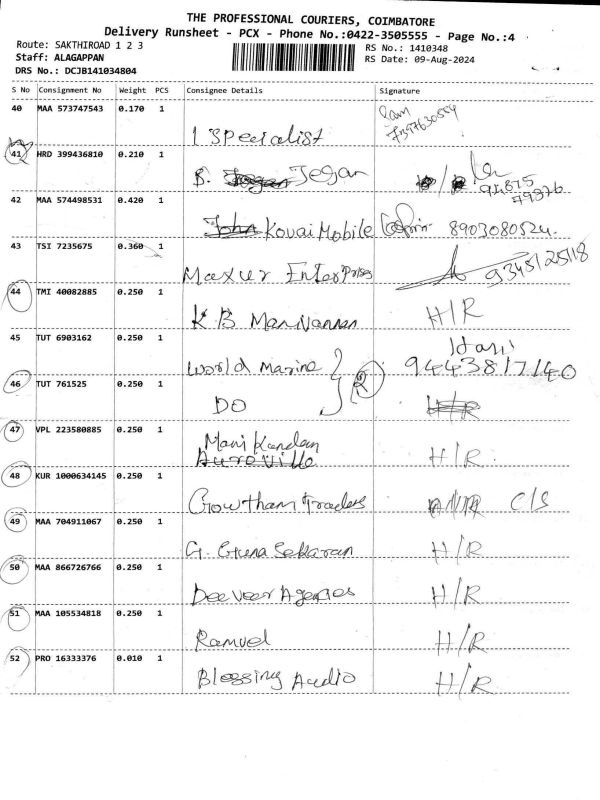 THE PROFESSIONAL COURIERS, COIMBATORE
Delivery Runsheet - PCX - Phone No.:0422-3505555 - Page No.:4
Route: SAKTHIROAD 1 2 3
RS No.: 1410348
Staff: ALAGAPPAN
RS Date: 09-Aug-2024
DRS No.: DCJB141034804
S No Consignment No Weight PCS Consignee Details Signature
40 MAA 573747543 0.170 1
1 Specialist
41 HRD 399436810 0.210 1
B. Jegan
94875
79376
42 MAA 574498531 0.420 1
John Kovai Mobile 8903080524
43 TSI 7235675 0.360 1
Maxxer Enterprises 9345125118
44 TMI 40082885 0.250 1
K B Marivannan H/R
45 TUT 6903162 0.250 1
Hari
World Marine 9443817140
46 TUT 761525 0.250 1
2
DO H/R
47 VPL 223580885 0.250 1
Mani Kandan
Auroville H/R
48 KUR 1000634145 0.250 1
Gowtham Traders C/S
49 MAA 704911067 0.250 1
G. Guna Sekaran H/R
50 MAA 866726766 0.250 1
Dee Veer Agencies H/R
51 MAA 105534818 0.250 1
Ramvel H/R
52 PRO 16333376 0.010 1
Blessing Audio H/R